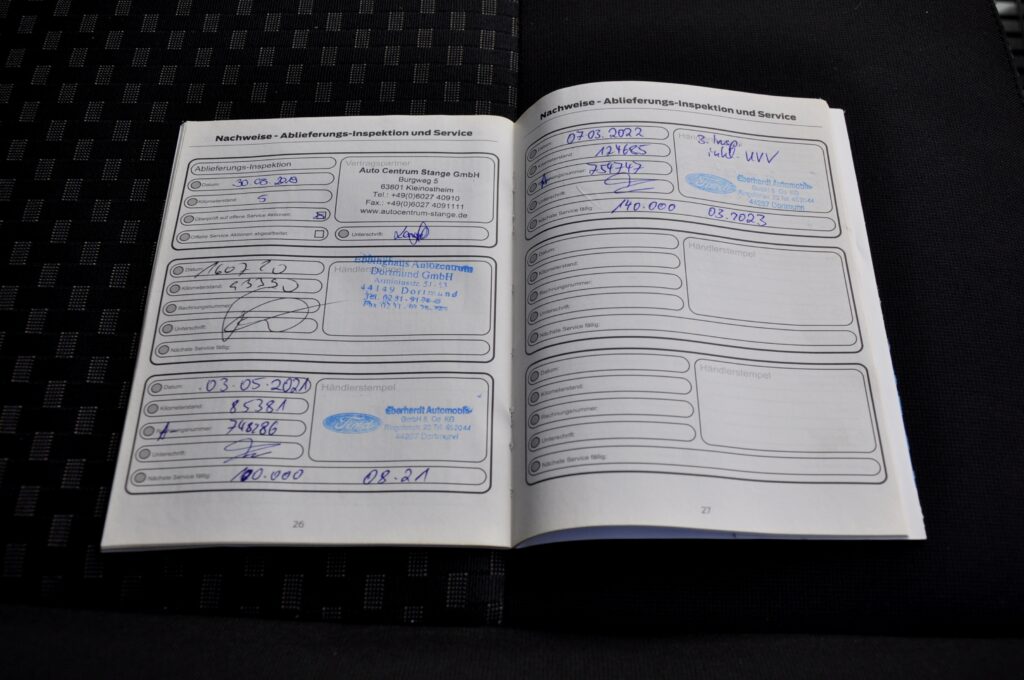 Nachweise - Ablieferungs-Inspektion und Service
Ablieferungs-Inspektion
Datum:
Kilometerstand: 5
Überprüft auf offene Service Aktionen:
Offene Service Aktionen abgearbeitet:
Vertragspartner
Auto Centrum Stange GmbH
Burgweg 5
63801 Kleinostheim
Tel.: +49(0)6027 40910
Fax.: +49(0)6027 4091111
www.autocentrum-stange.de
Unterschrift:
Datum:
Kilometerstand:
Rechnungsnummer:
Unterschrift:
Nächste Service fällig:
Händlerstempel
Ebbinghaus Autozentrum
Dortmund GmbH
44149 Dortmund
Datum: 03.05.2021
Kilometerstand: 85381
A nungsnummer: 748286
Unterschrift:
Nächste Service fällig: 100.000 08.21
Händlerstempel
Ford
Eberhardt Automobile
GmbH & Co. KG
44287 Dortmund
26
Nachweise - Ablieferungs-Inspektion und Service
Datum: 07.03.2022
Kilometerstand: 124685
A nungsnummer: 754747
Unterschrift:
Nächste Service fällig: 140.000 03.2023
3. Insp.
inkl. UVV
Ford
Eberhardt Automobile
GmbH & Co. KG
44287 Dortmund
Datum:
Kilometerstand:
Rechnungsnummer:
Unterschrift:
Nächste Service fällig:
Händlerstempel
Datum:
Kilometerstand:
Rechnungsnummer:
Unterschrift:
Nächste Service fällig:
Händlerstempel
27